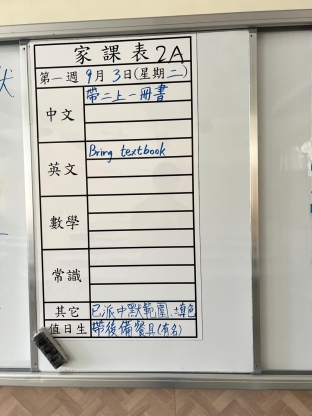 家課表 2A
第一週 9月3日(星期二)
中文 帶二上一冊書
英文 Bring textbook
數學
常識
其它 已派中默範圍、填色
值日生 帶後備餐具(有名)